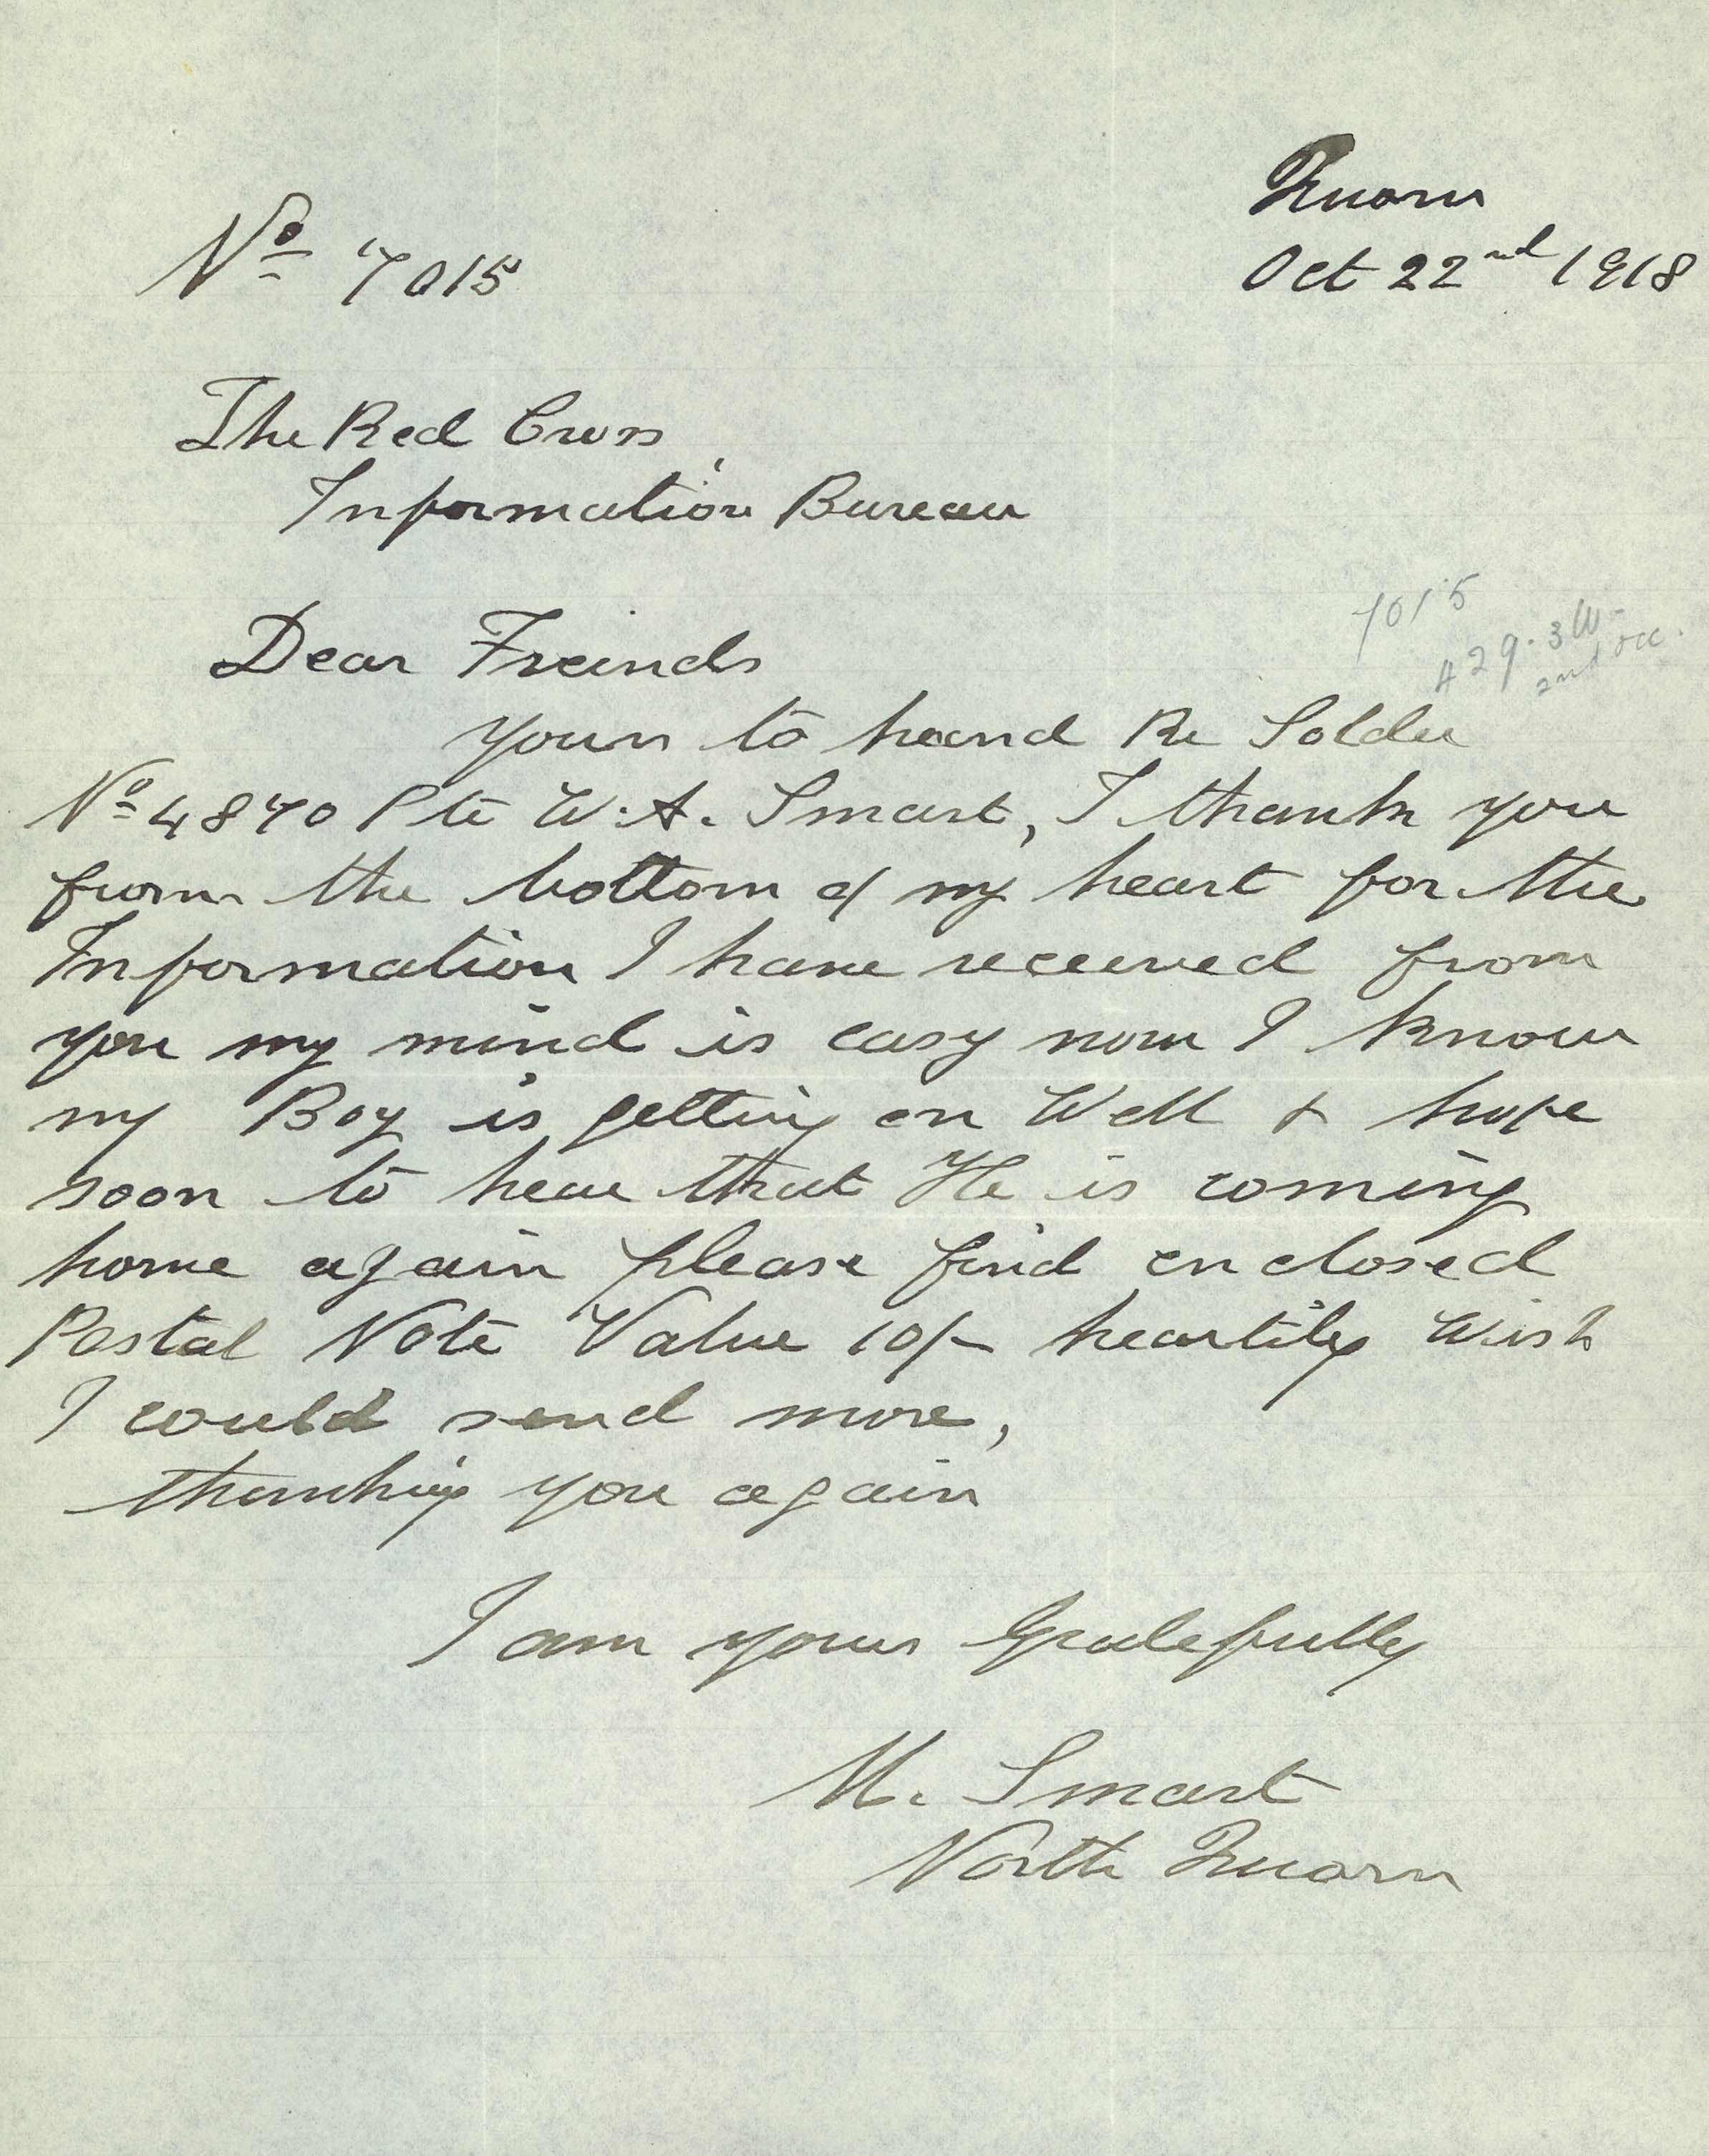 Quorn
No 7015
Oct 22nd 1918
The Red Cross
Information Bureau
7015
A 29.3W-
2nd occ.
Dear Freinds
yours to hand Re Solder
No 4870 Pte W.A. Smart, I thank you
from the bottom of my heart for the
Information I have received from
you my mind is easy now I know
my Boy is getting on Well & hope
soon to hear that He is coming
home again please find enclosed
Postal Note Value 10/- heartily Wish
I could send more,
thanking you again
I am yours Gratefully
M. Smart
North Quorn